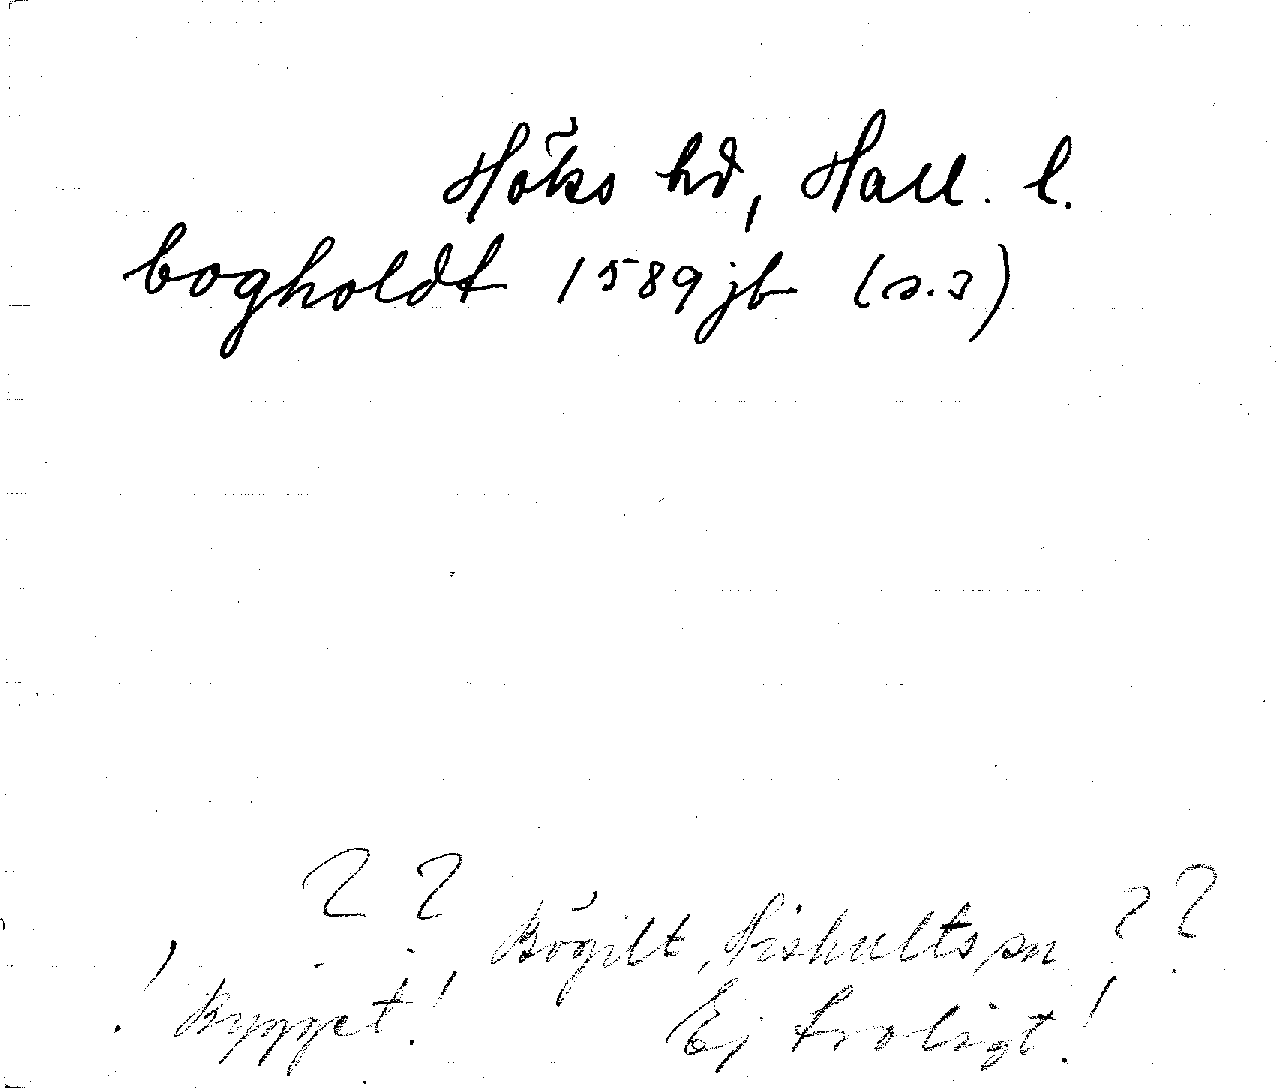 Höks hd, Hall. l.
bogholdt 1589 jb (s. 2)
? ? Bögilt, Hishults sn ? ?
! Bygget! Ej troligt!